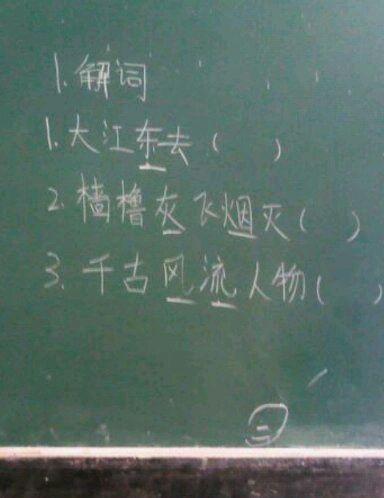 1.解词
1.大江东去( )
2.樯橹灰飞烟灭( )
3.千古风流人物( )
二